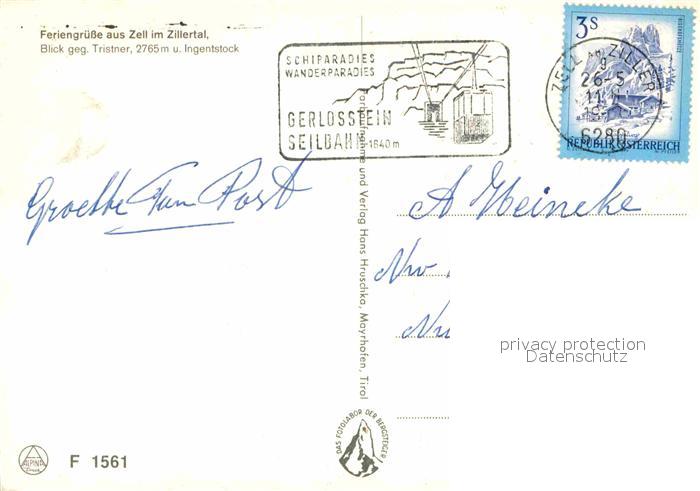 Feriengrüße aus Zell im Zillertal,
Blick geg. Tristner, 2765 m u. Ingentstock
SCHIPARADIES
WANDERPARADIES
GERLOSSTEIN
SEILBAHN 1640 m
3S
ZELL AM ZILLER
26-5
11
6280
REPUBLIK ÖSTERREICH
A Meineke
Farbaufnahme und Verlag Hans Hruschka, Mayrhofen, Tirol
privacy protection
Datenschutz
DAS FOTOLABOR DER BERGSTEIGER
ALPINA
F 1561